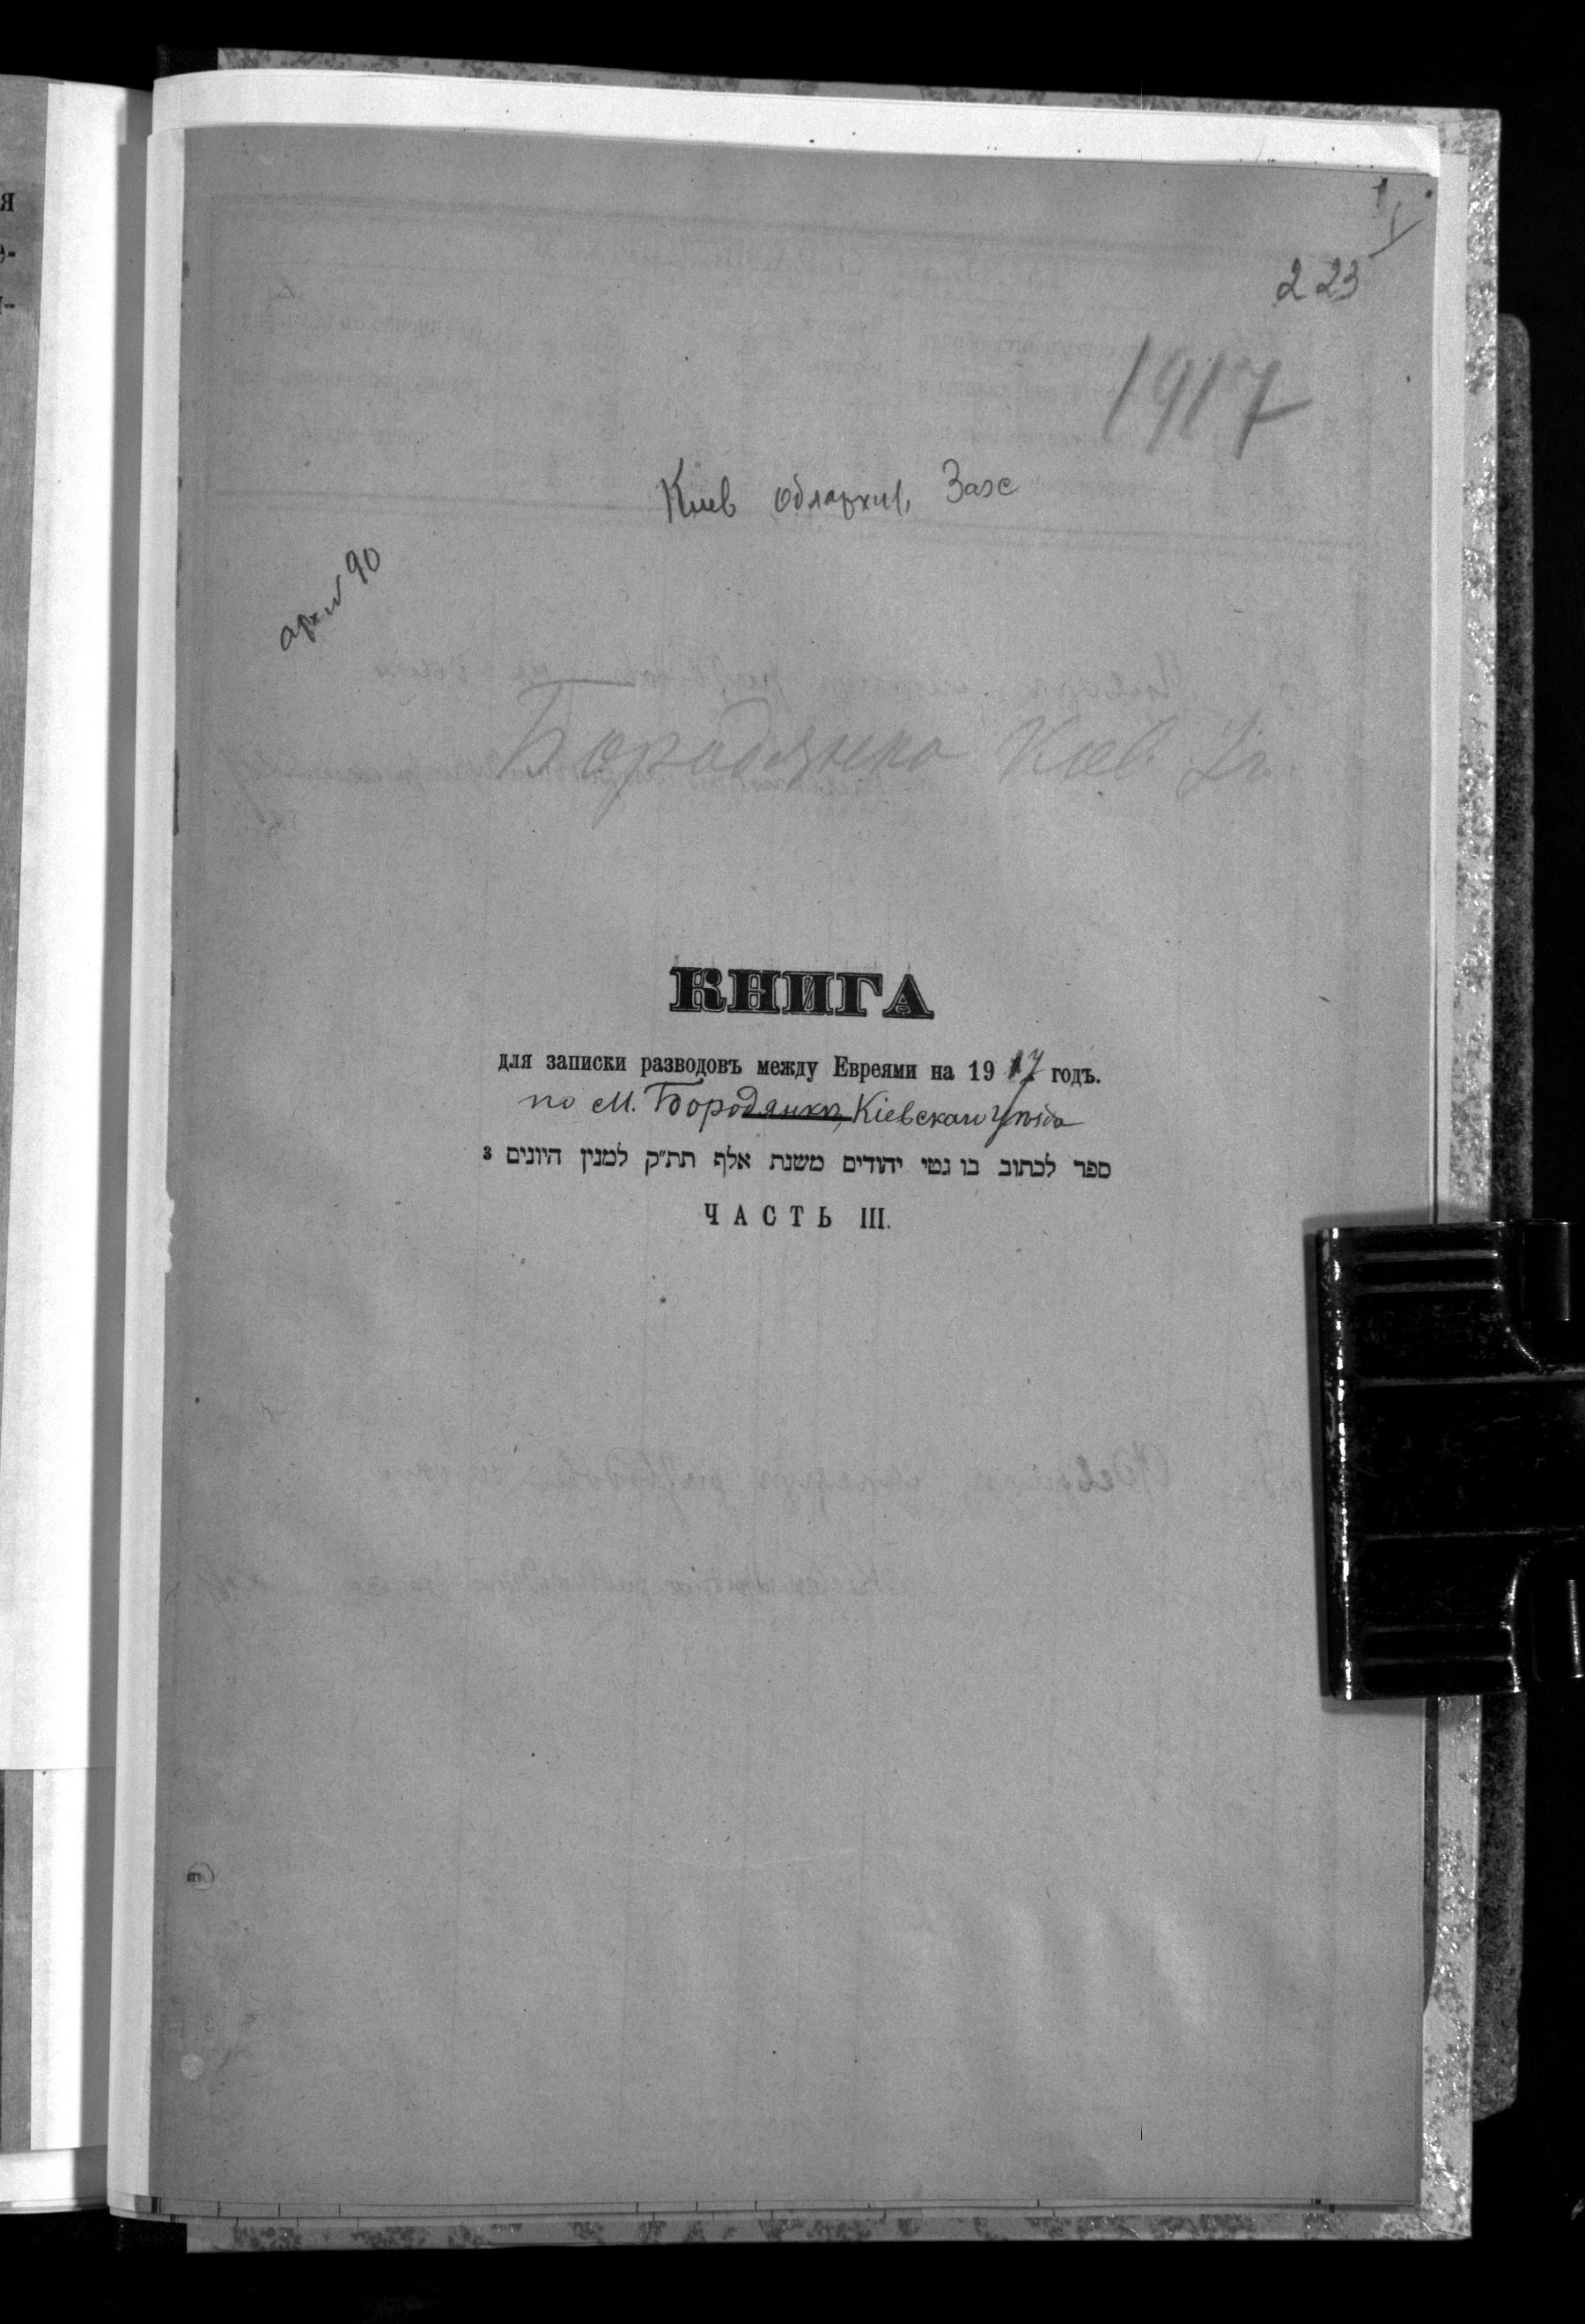 223
1917
Киев облархив, Загс
арх № 90
Бородянка Кіев. у.
КНИГА
для записки разводовъ между Евреями на 1917 годъ.
по м. Бородянкѣ, Кіевскаго уѣзда
ספר לכתוב בו גטי יהודים משנת אלף תת״ק למנין היונים
ЧАСТЬ III.